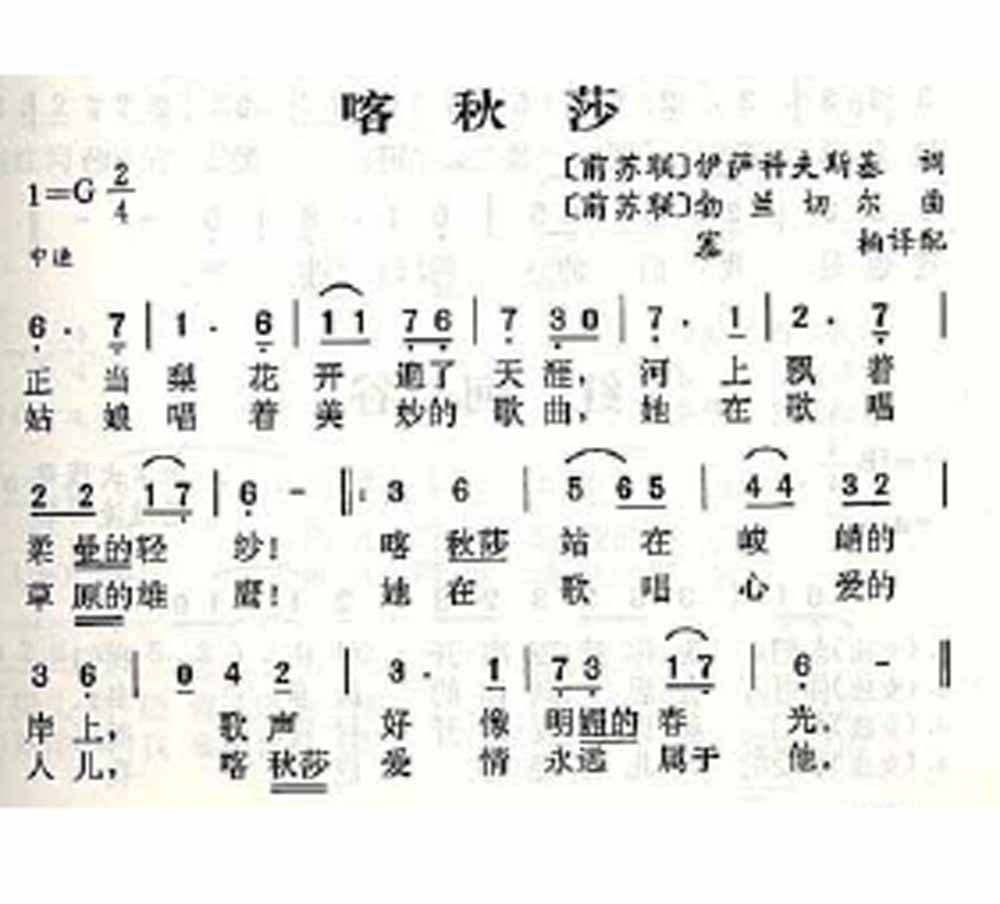 喀秋莎
1=G 2/4
〔前苏联〕伊萨科夫斯基 词
〔前苏联〕勃兰切尔 曲
中速
寒柏译配
6. 7 | 1. 6 | 11 76 | 7 30 | 7. 1 | 2. 7 |
正当梨花开遍了天涯,河上飘着
姑娘唱着美妙的歌曲,她在歌唱
22 17 | 6 - ‖: 3 6 | 5 65 | 44 32 |
柔曼的轻纱!喀秋莎站在峻峭的
草原的雄鹰!她在歌唱心爱的
3 6 | 0 4 2 | 3. 1 | 73 17 | 6 - ‖
岸上,歌声好像明媚的春光.
人儿,喀秋莎爱情永远属于他.